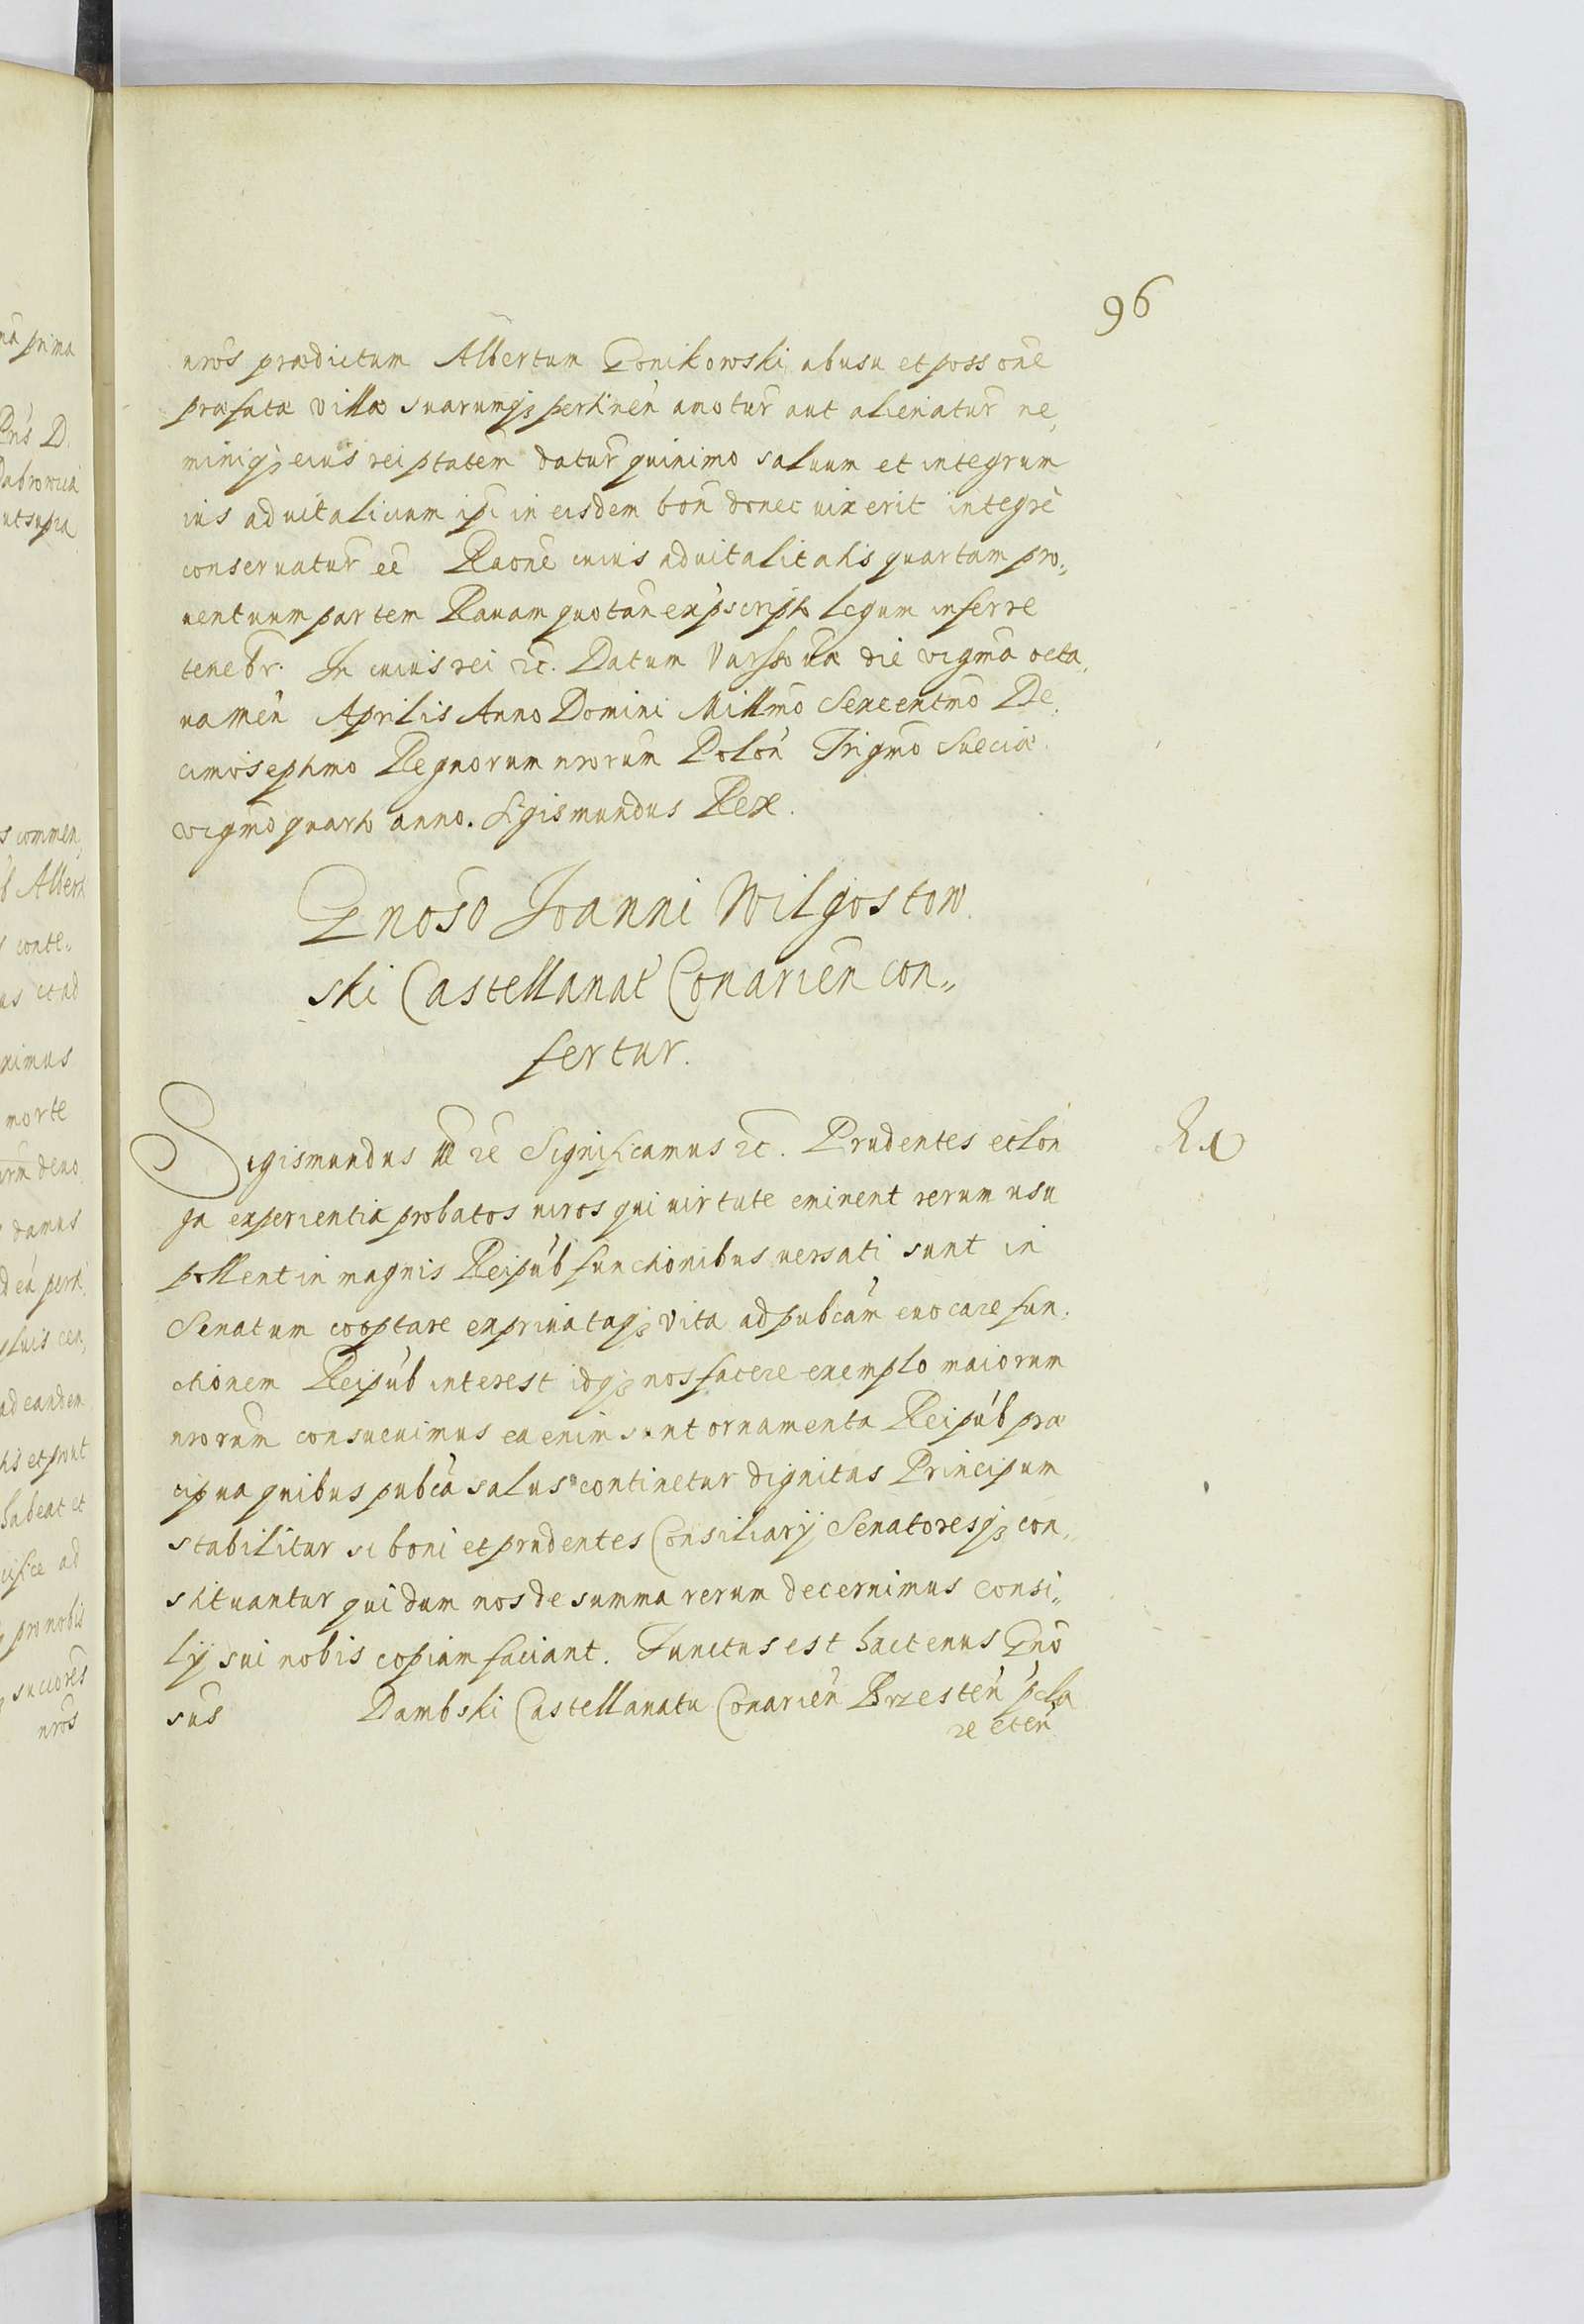 96
nrōs prædictum Albertum Gonikowski, abusu et possōne
præfatæ villæ suarumq; pertineń amotur̄ aut alienatur̄ ne,
miniq; eius rei ptatem datur̄ quinimo saluum et integrum
ius aduitalicium ipi in eisdem bon̄ donec uixerit integrè
conseruatur̄ eē Raōne cuius aduitalitatis quartam pro„
uentuum partem Rauam quotan̄ expscripto legum inferre
tenebr. In cuius rei ꝛc. Datum Varsouiæ die vigmā octa,
ua meń Aprilis Anno Domini Millmō Sexcentmō De,
cimoseptimo Regnorum nrorum Polon̄ Trigmō Sueciæ
vigmō quarto anno. Sigismundus Rex.
Gnōso Joanni Wilgostow
ski Castellanat̄ Conarien̄ con„
fertur.
Sigismundus III ꝛc Significamus ꝛc. Prudentes et lon
Rx
ga experientia probatos uiros qui uirtute eminent rerum usu
pollent in magnis Reipub́ functionibus uersati sunt in
Senatum cooptare expriuataq; vita ad pubcám euocare fun,
ctionem Reipub́ interest idq; nos facere exemplo maiorum
nrorum consueuimus ea enim sunt ornamenta Reipub́ præ
cipua quibus pubcá salus continetur dignitas Principum
stabilitur si boni et prudentes Consiliarij Senatoresq; con„
stituantur qui dum nos de summa rerum decernimus consi„
lij sui nobis copiam faciant. Functus est hactenus Gnō
sus Dambski Castellanatu Conarień Brzesteń
ma prima
utsupra
s commen,
b Albert
conte„
as et ad
ximus
morte
deno
damus
ad eandem
tis et prout
habeat et
ad
pro nobis
succores
nrōs